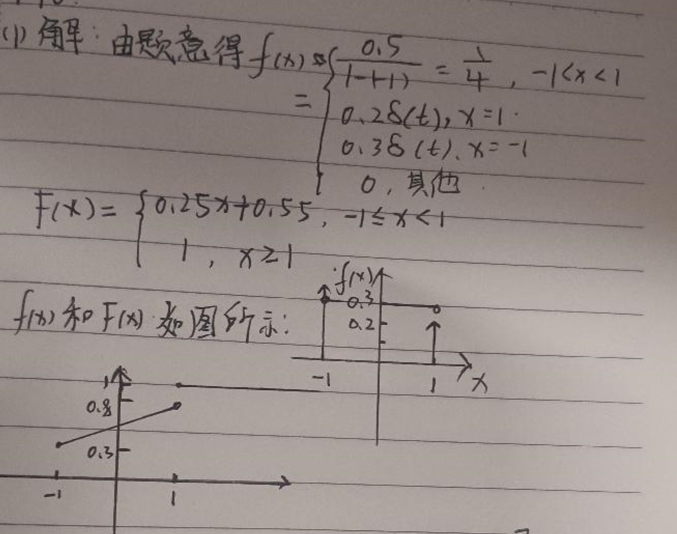 (1) 解: 由题意得 f(x) = { 0.5/(1-(-1)) = 1/4, -1<x<1
0.2δ(t), x=1.
0.3δ(t), x=-1
0, 其他.
F(x) = { 0.25x+0.55, -1≤x<1
1, x≥1
f(x) 和 F(x) 如图所示:
f(x)
0.3
0.2
-1 1 x
1
0.8
0.3
-1 1